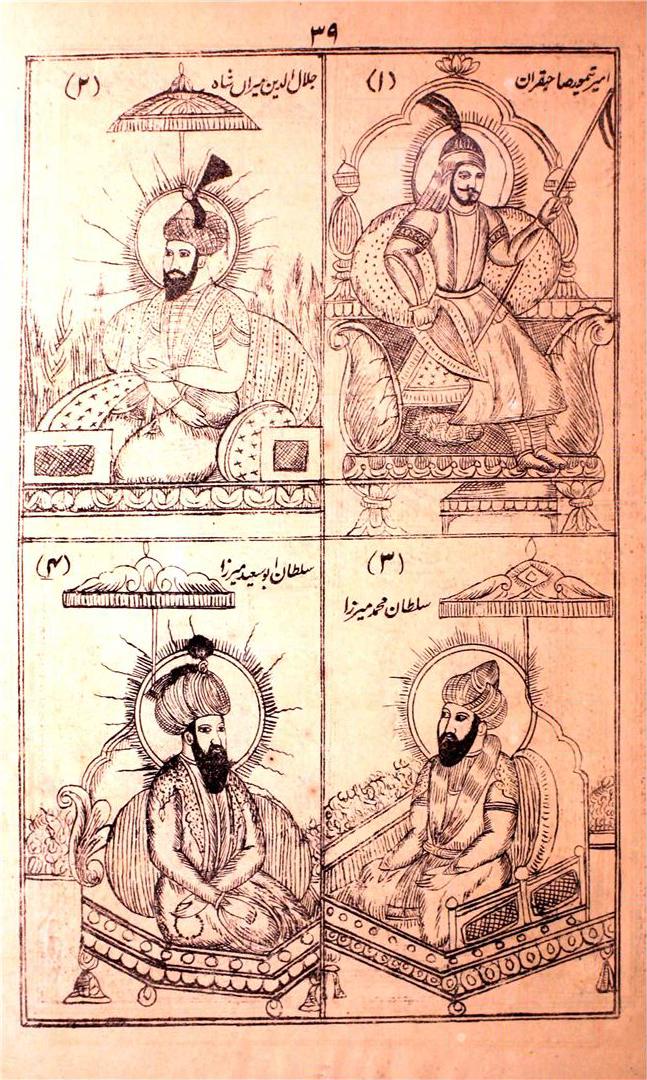 ۳۹
(۱) امیر تیمور صاحبقران
(۲) جلال الدین میراں شاہ
(۳)
سلطان محمد میرزا
(۴) سلطان ابو سعید میرزا